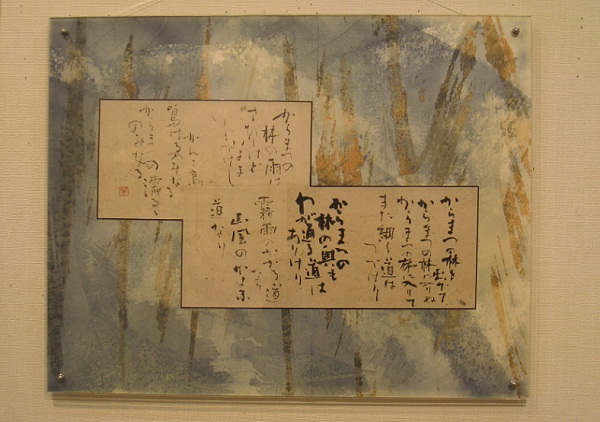 からまつの林を
出でて
からまつの林に入りぬ
からまつの林に入りて
また細く道は
つづけり
からまつの
林の奥も
わが通る道は
ありけり
霧雨のかかる道
なり
山風のかよふ
道なり
からまつの
林の雨は
さびしけど
いよよ
しづけし
かんこ鳥
鳴けるのみなる
からまつの濡るる
のみなる